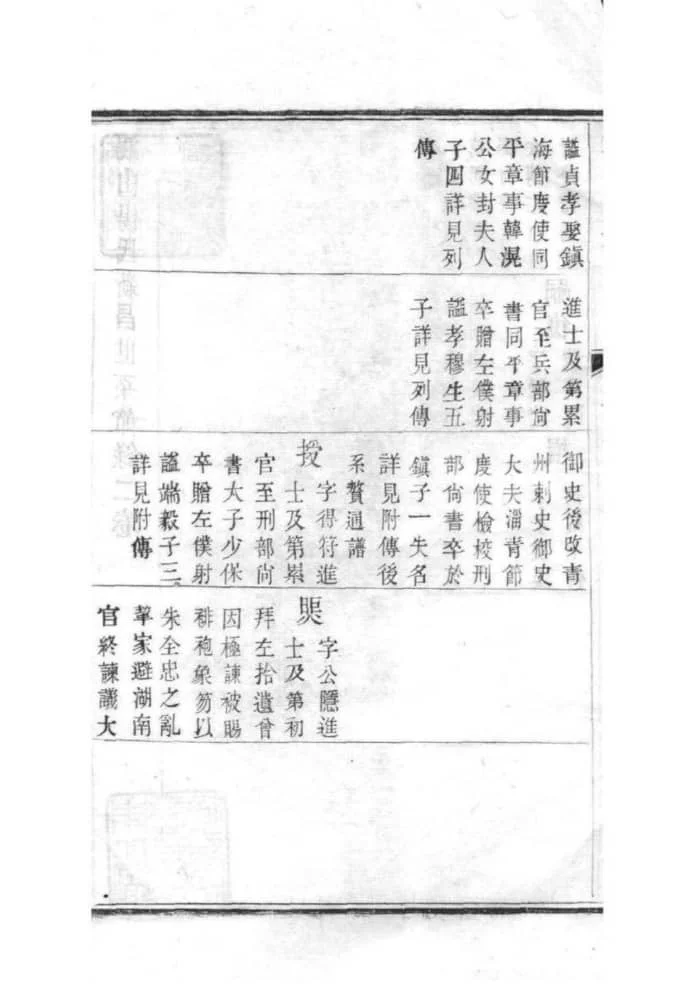 謚貞孝娶鎭
海節度使同
平章事韓滉
公女封夫人
子四詳見列
傳
進士及第累
官至兵部尙
書同平章事
卒贈左僕射
謚孝穆生五
子詳見列傳
御史後改青
州剌史御史
大夫淄青節
度使檢校刑
部尙書卒於
鎭子一失名
詳見附傳後
系贅通譜
授
字得符進
士及第累
官至刑部尙
書大子少保
卒贈左僕射
謚端毅子三
詳見附傳
煚
字公隱進
士及第初
拜左拾遺曾
因極諫被賜
緋袍象笏以
朱全忠之亂
挈家避湖南
官終諫議大